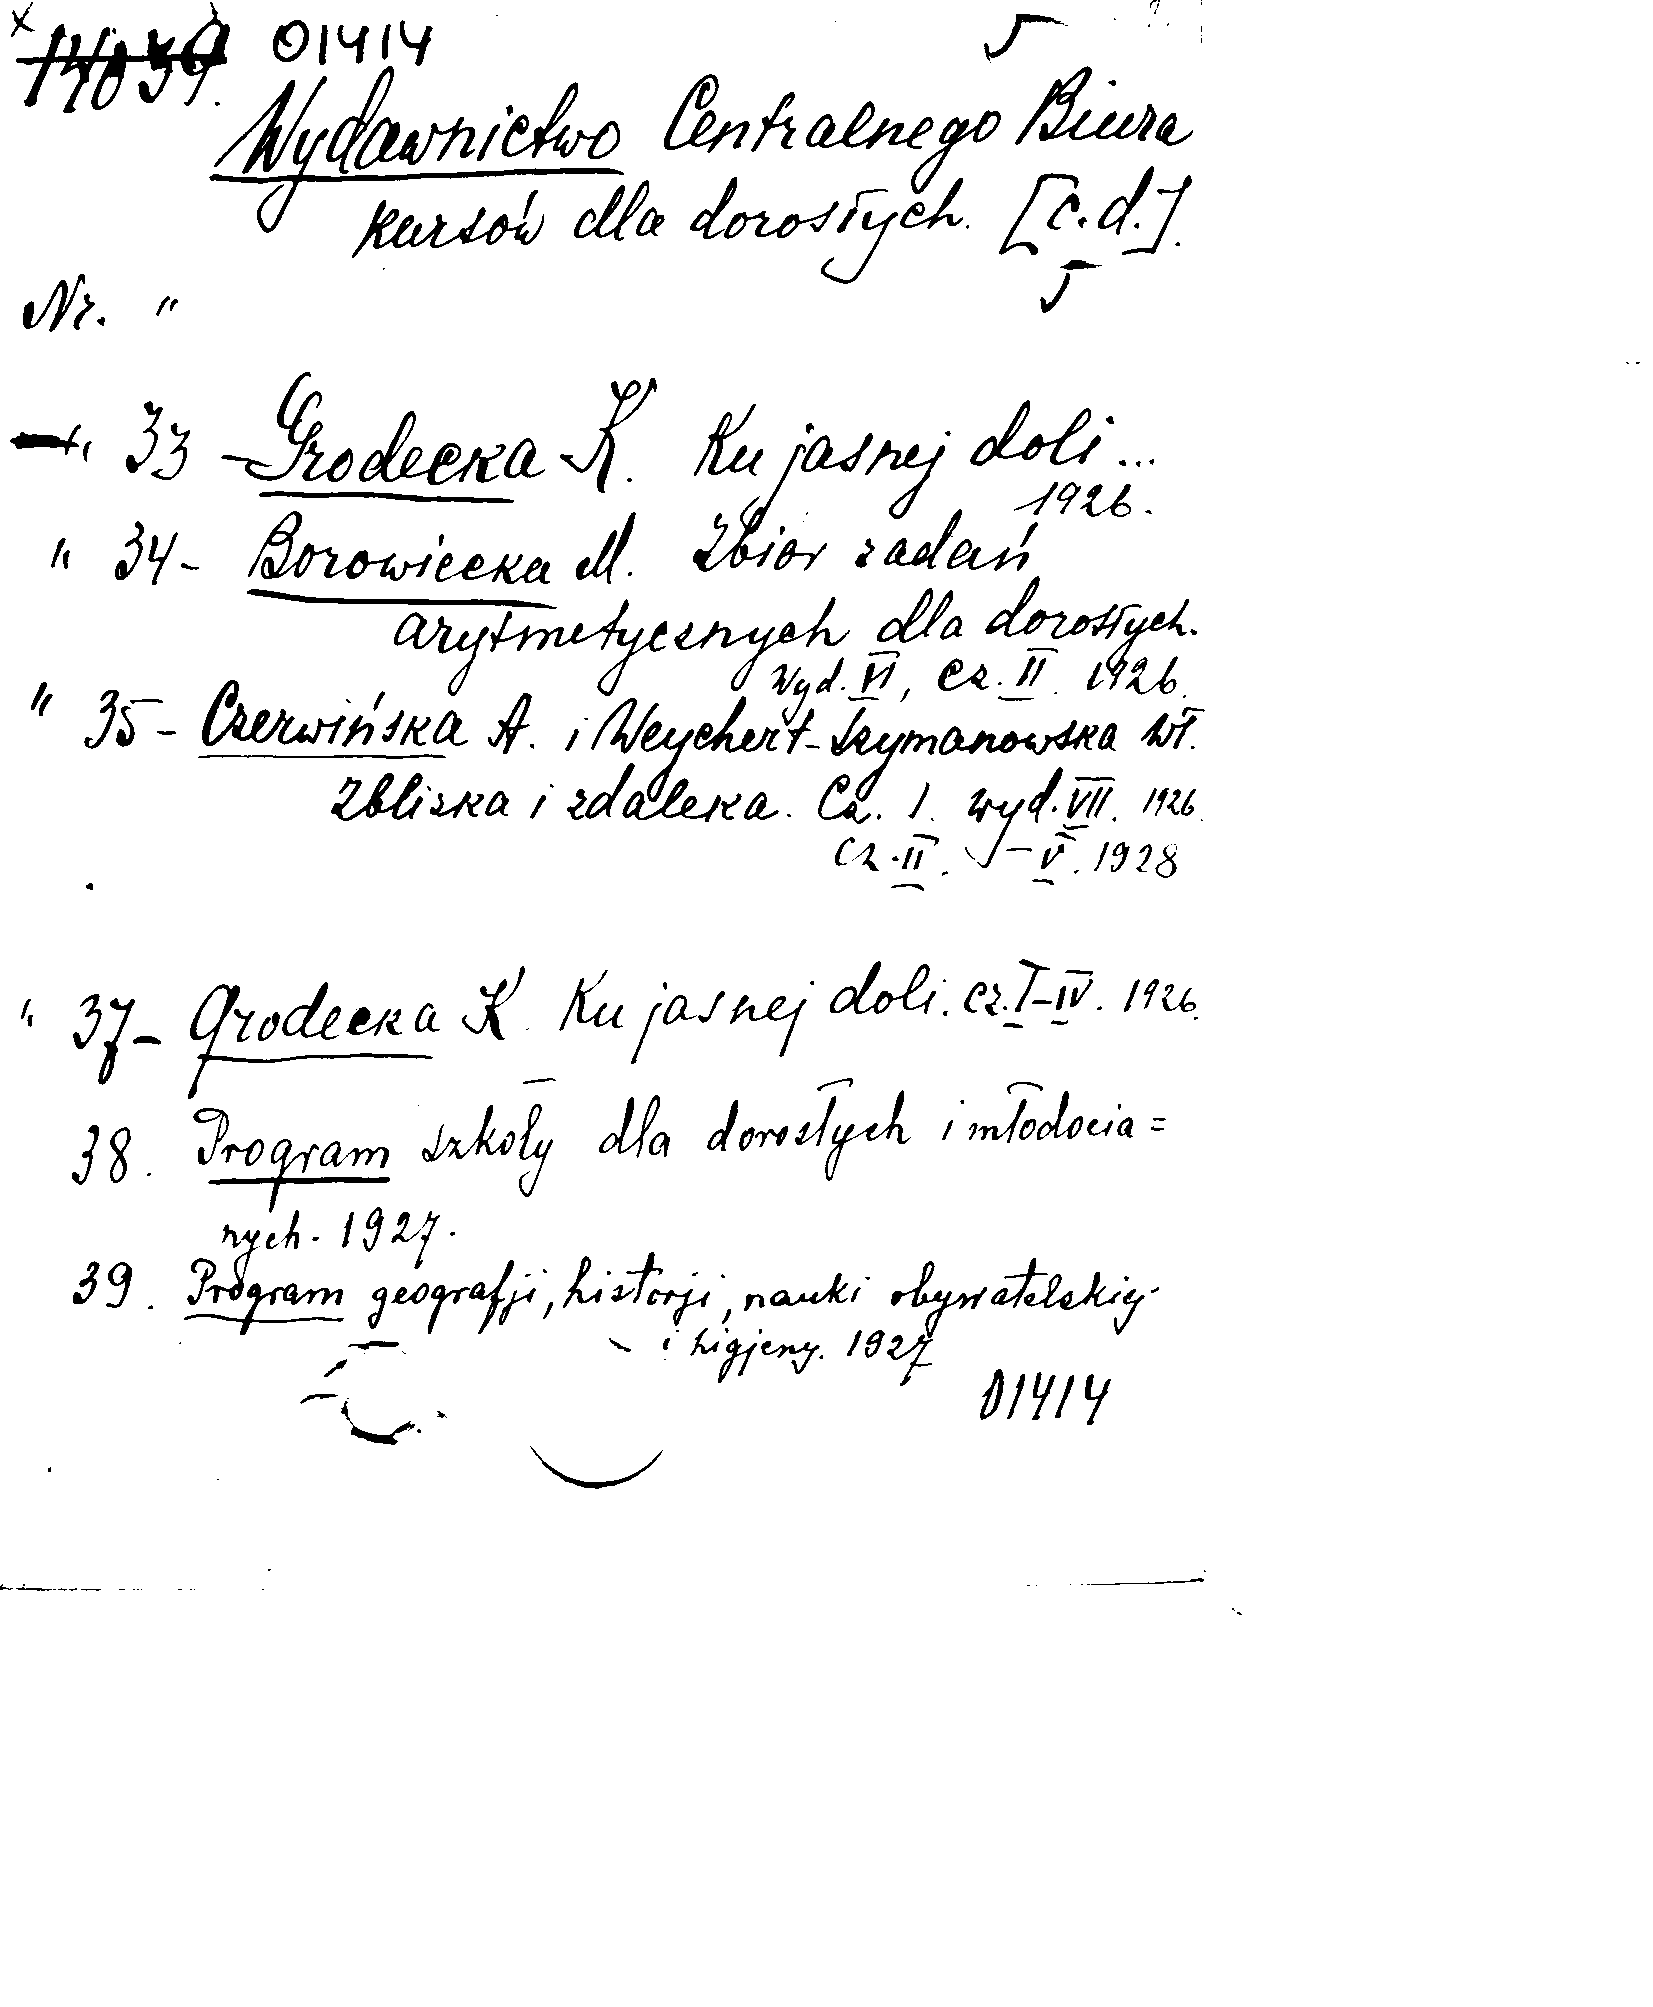 01414 5
Wydawnictwo Centralnego Biura
kursów dla dorosłych. [c.d.].
5
Nr. "
" 33 - Grodecka K. Ku jasnej doli ...
1926.
" 34 - Borowiecka M. Zbior zadań
arytmetycznych dla dorosłych.
Wyd. VI, Cz. II. 1926.
" 35 - Czerwińska A. i Weychert-Szymanowska Wł.
Zbliska i zdaleka. Cz. I. wyd. VII. 1926.
Cz. II. - V. 1928
" 37 - Grodecka K. Ku jasnej doli. Cz. I-IV. 1926.
38. Program szkoły dla dorosłych i młodocia=
nych. 1927.
39. Program geografji, historji, nauki obywatelskiej
i higjeny. 1927
01414